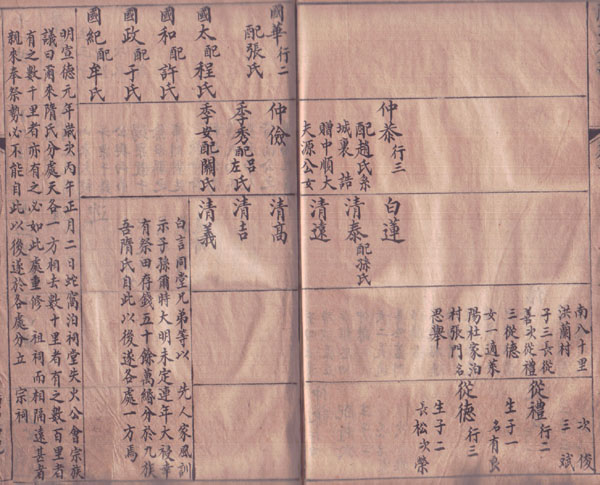 南八十里
洪蘭村
子三長從
善次從禮
三從德
女一適萊
陽杜家泊
村張門名
思舉
次俊
三斌
從禮行二
生子一
名有良
從德行三
生子二
長松次榮
仲恭行三
配趙氏系
城裏誥
贈中順大
夫源公女
白蓮
清泰配孫氏
清遠
國華行二
配張氏
國太配程氏
國和配許氏
國政配于氏
國紀配牟氏
仲儉
季秀配呂氏左氏
季安配關氏
清高
清吉
清義
白言同堂兄弟等以先人家風訓
示子孫爾時大明未定連年大祲幸
有祭田存錢五十餘萬緡分於九族
吾隋氏自此以後遂各處一方焉
明宣德元年歲次丙午正月二日蛇窩泊祠堂失火公會宗族
議曰爾來隋氏分處天各一方相去數十里者有之數百里者
有之數千里者亦有之必如此處重修祖祠而相隔遠甚者
親來奉祭勢必不能自此以後遂於各處分立宗祠